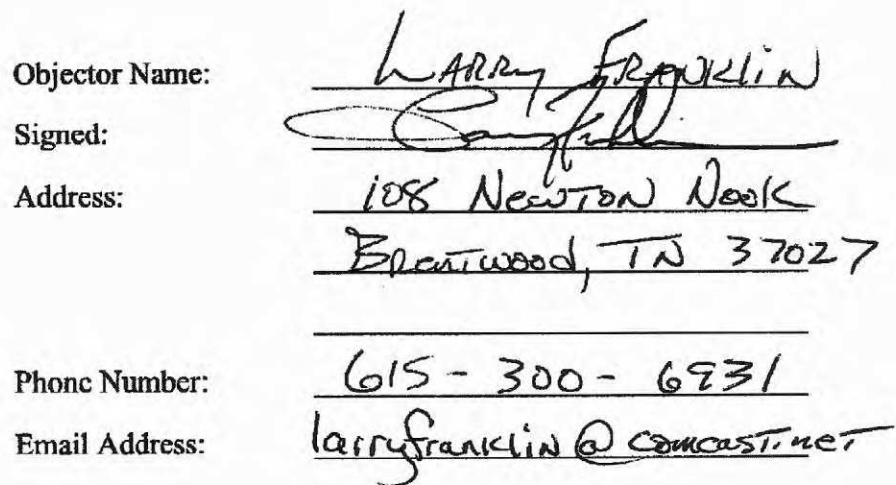 Objector Name: LARRY FRANKLIN
Signed:
Address: 108 Newton Nook
Brentwood, TN 37027
Phone Number: 615-300-6931
Email Address: larryfranklin@comcast.net